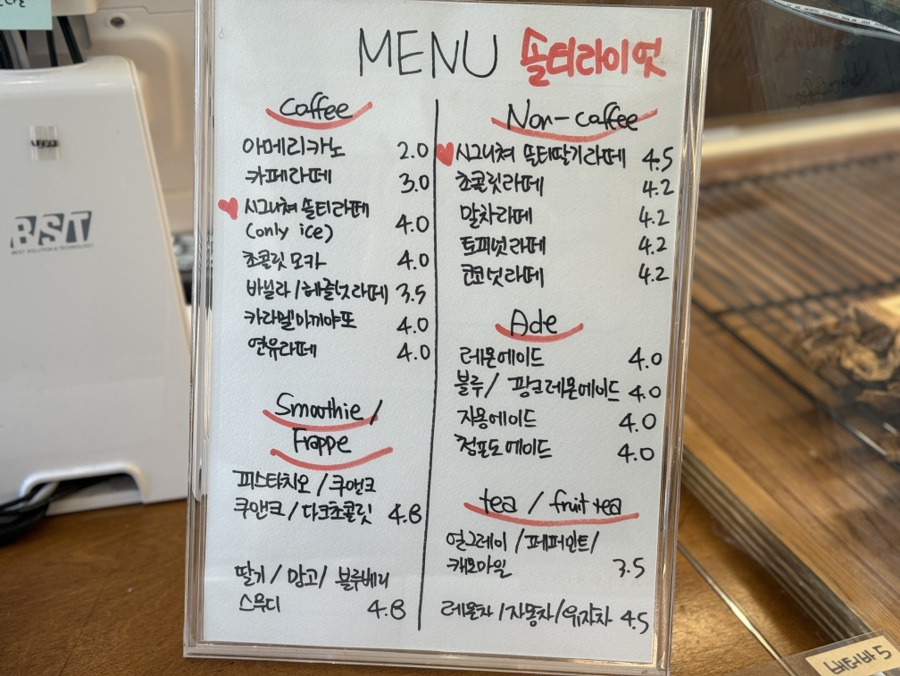 MENU 솔티라이엇
Caffee
아메리카노 2.0
카페라떼 3.0
시그니쳐 쏠티라떼 4.0
(only ice)
쵸콜릿 모카 4.0
바닐라/헤즐넛라떼 3.5
카라멜마끼야또 4.0
연유라떼 4.0
Smoothie /
Frappe
피스타치오 / 쿠앤크
쿠앤크 / 다크쵸콜릿 4.8
딸기 / 망고 / 블루베리
스무디 4.8
Non-caffee
시그니쳐 쏠티딸기라떼 4.5
쵸콜릿라떼 4.2
말차라떼 4.2
토피넛라떼 4.2
코코넛라떼 4.2
Ade
레몬에이드 4.0
블루/ 핑크레몬에이드 4.0
자몽에이드 4.0
청포도에이드 4.0
tea / fruit tea
얼그레이 / 페퍼민트/
캐모마일 3.5
레몬차 / 자몽차/유자차 4.5
BST
BEST SOLUTION & TECHNOLOGY